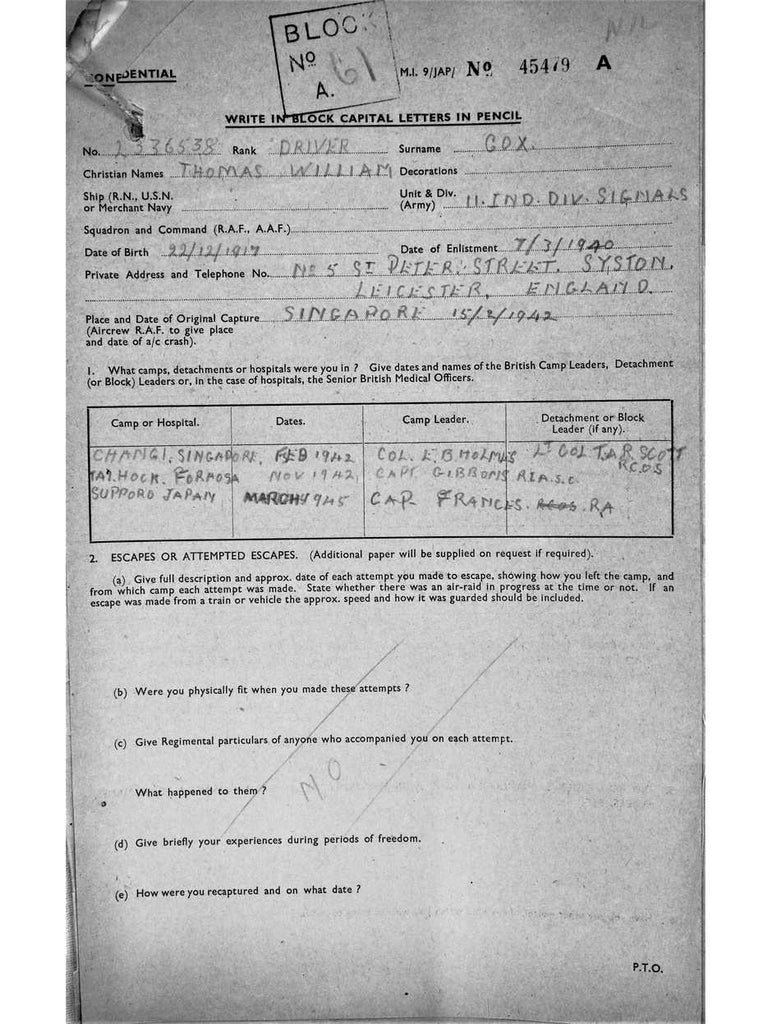 NIL
BLOCK
Nº
A. 61
CONFIDENTIAL
M.I. 9/JAP/ Nº 45479 A
WRITE IN BLOCK CAPITAL LETTERS IN PENCIL
No. 2336538 Rank DRIVER Surname COX.
Christian Names THOMAS WILLIAM Decorations
Ship (R.N., U.S.N. or Merchant Navy
Unit & Div. (Army) 11. IND. DIV. SIGNALS
Squadron and Command (R.A.F., A.A.F.)
Date of Birth 22/12/1917 Date of Enlistment 7/3/1940
Private Address and Telephone No. No 5 ST PETER. STREET. SYSTON.
LEICESTER, ENGLAND.
Place and Date of Original Capture SINGAPORE 15/2/1942
(Aircrew R.A.F. to give place
and date of a/c crash).
1. What camps, detachments or hospitals were you in ? Give dates and names of the British Camp Leaders, Detachment
(or Block) Leaders or, in the case of hospitals, the Senior British Medical Officers.
Camp or Hospital. Dates. Camp Leader. Detachment or Block Leader (if any).
CHANGI. SINGAPORE, FEB 1942 COL. E B HOLMES LT COL T.A.R. SCOTT R.C.O.S
TAI. HOCK. FORMOSA NOV 1942, CAPT GIBBONS R.I.A.S.C.
SUPPORO JAPAN MARCH 1945 CAP. FRANCES. RCOS. RA
2. ESCAPES OR ATTEMPTED ESCAPES. (Additional paper will be supplied on request if required).
(a) Give full description and approx. date of each attempt you made to escape, showing how you left the camp, and
from which camp each attempt was made. State whether there was an air-raid in progress at the time or not. If an
escape was made from a train or vehicle the approx. speed and how it was guarded should be included.
(b) Were you physically fit when you made these attempts ?
(c) Give Regimental particulars of anyone who accompanied you on each attempt.
NO
What happened to them ?
(d) Give briefly your experiences during periods of freedom.
(e) How were you recaptured and on what date ?
P.T.O.